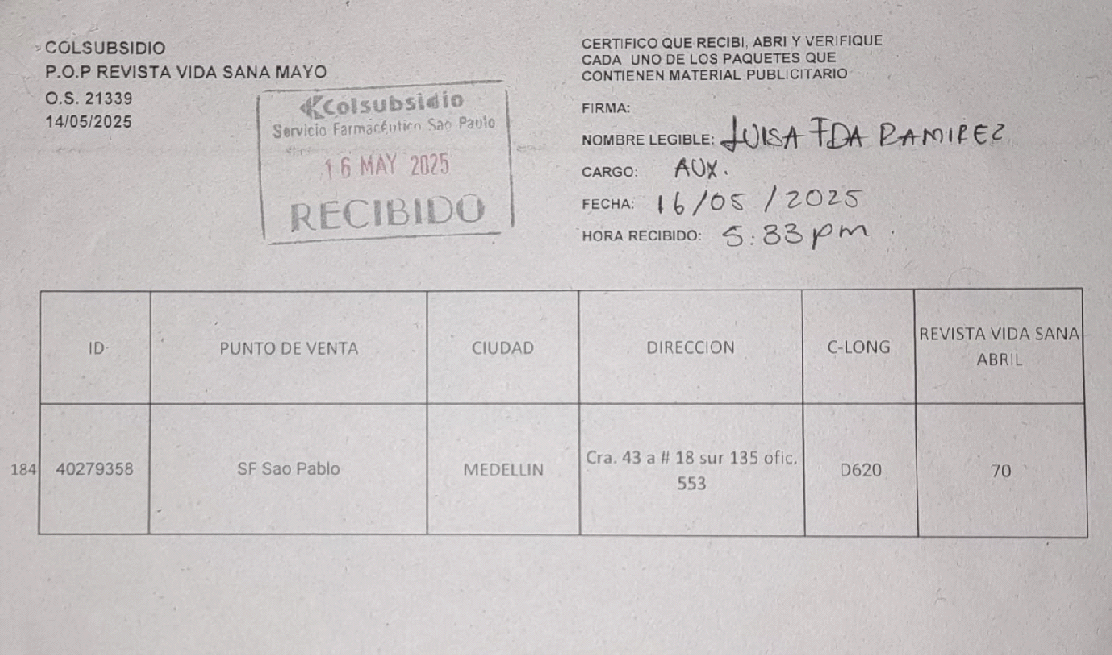 COLSUBSIDIO
P.O.P REVISTA VIDA SANA MAYO
O.S. 21339
14/05/2025
Colsubsidio
Servicio Farmacéutico Sao Paulo
16 MAY 2025
RECIBIDO
CERTIFICO QUE RECIBI, ABRI Y VERIFIQUE
CADA UNO DE LOS PAQUETES QUE
CONTIENEN MATERIAL PUBLICITARIO
FIRMA:
NOMBRE LEGIBLE: LUISA FDA RAMIREZ
CARGO: AUX.
FECHA: 16/05/2025
HORA RECIBIDO: 5:33 pm.
ID
PUNTO DE VENTA
CIUDAD
DIRECCION
C-LONG
REVISTA VIDA SANA
ABRIL
184
40279358
SF Sao Pablo
MEDELLIN
Cra. 43 a # 18 sur 135 ofic.
553
D620
70